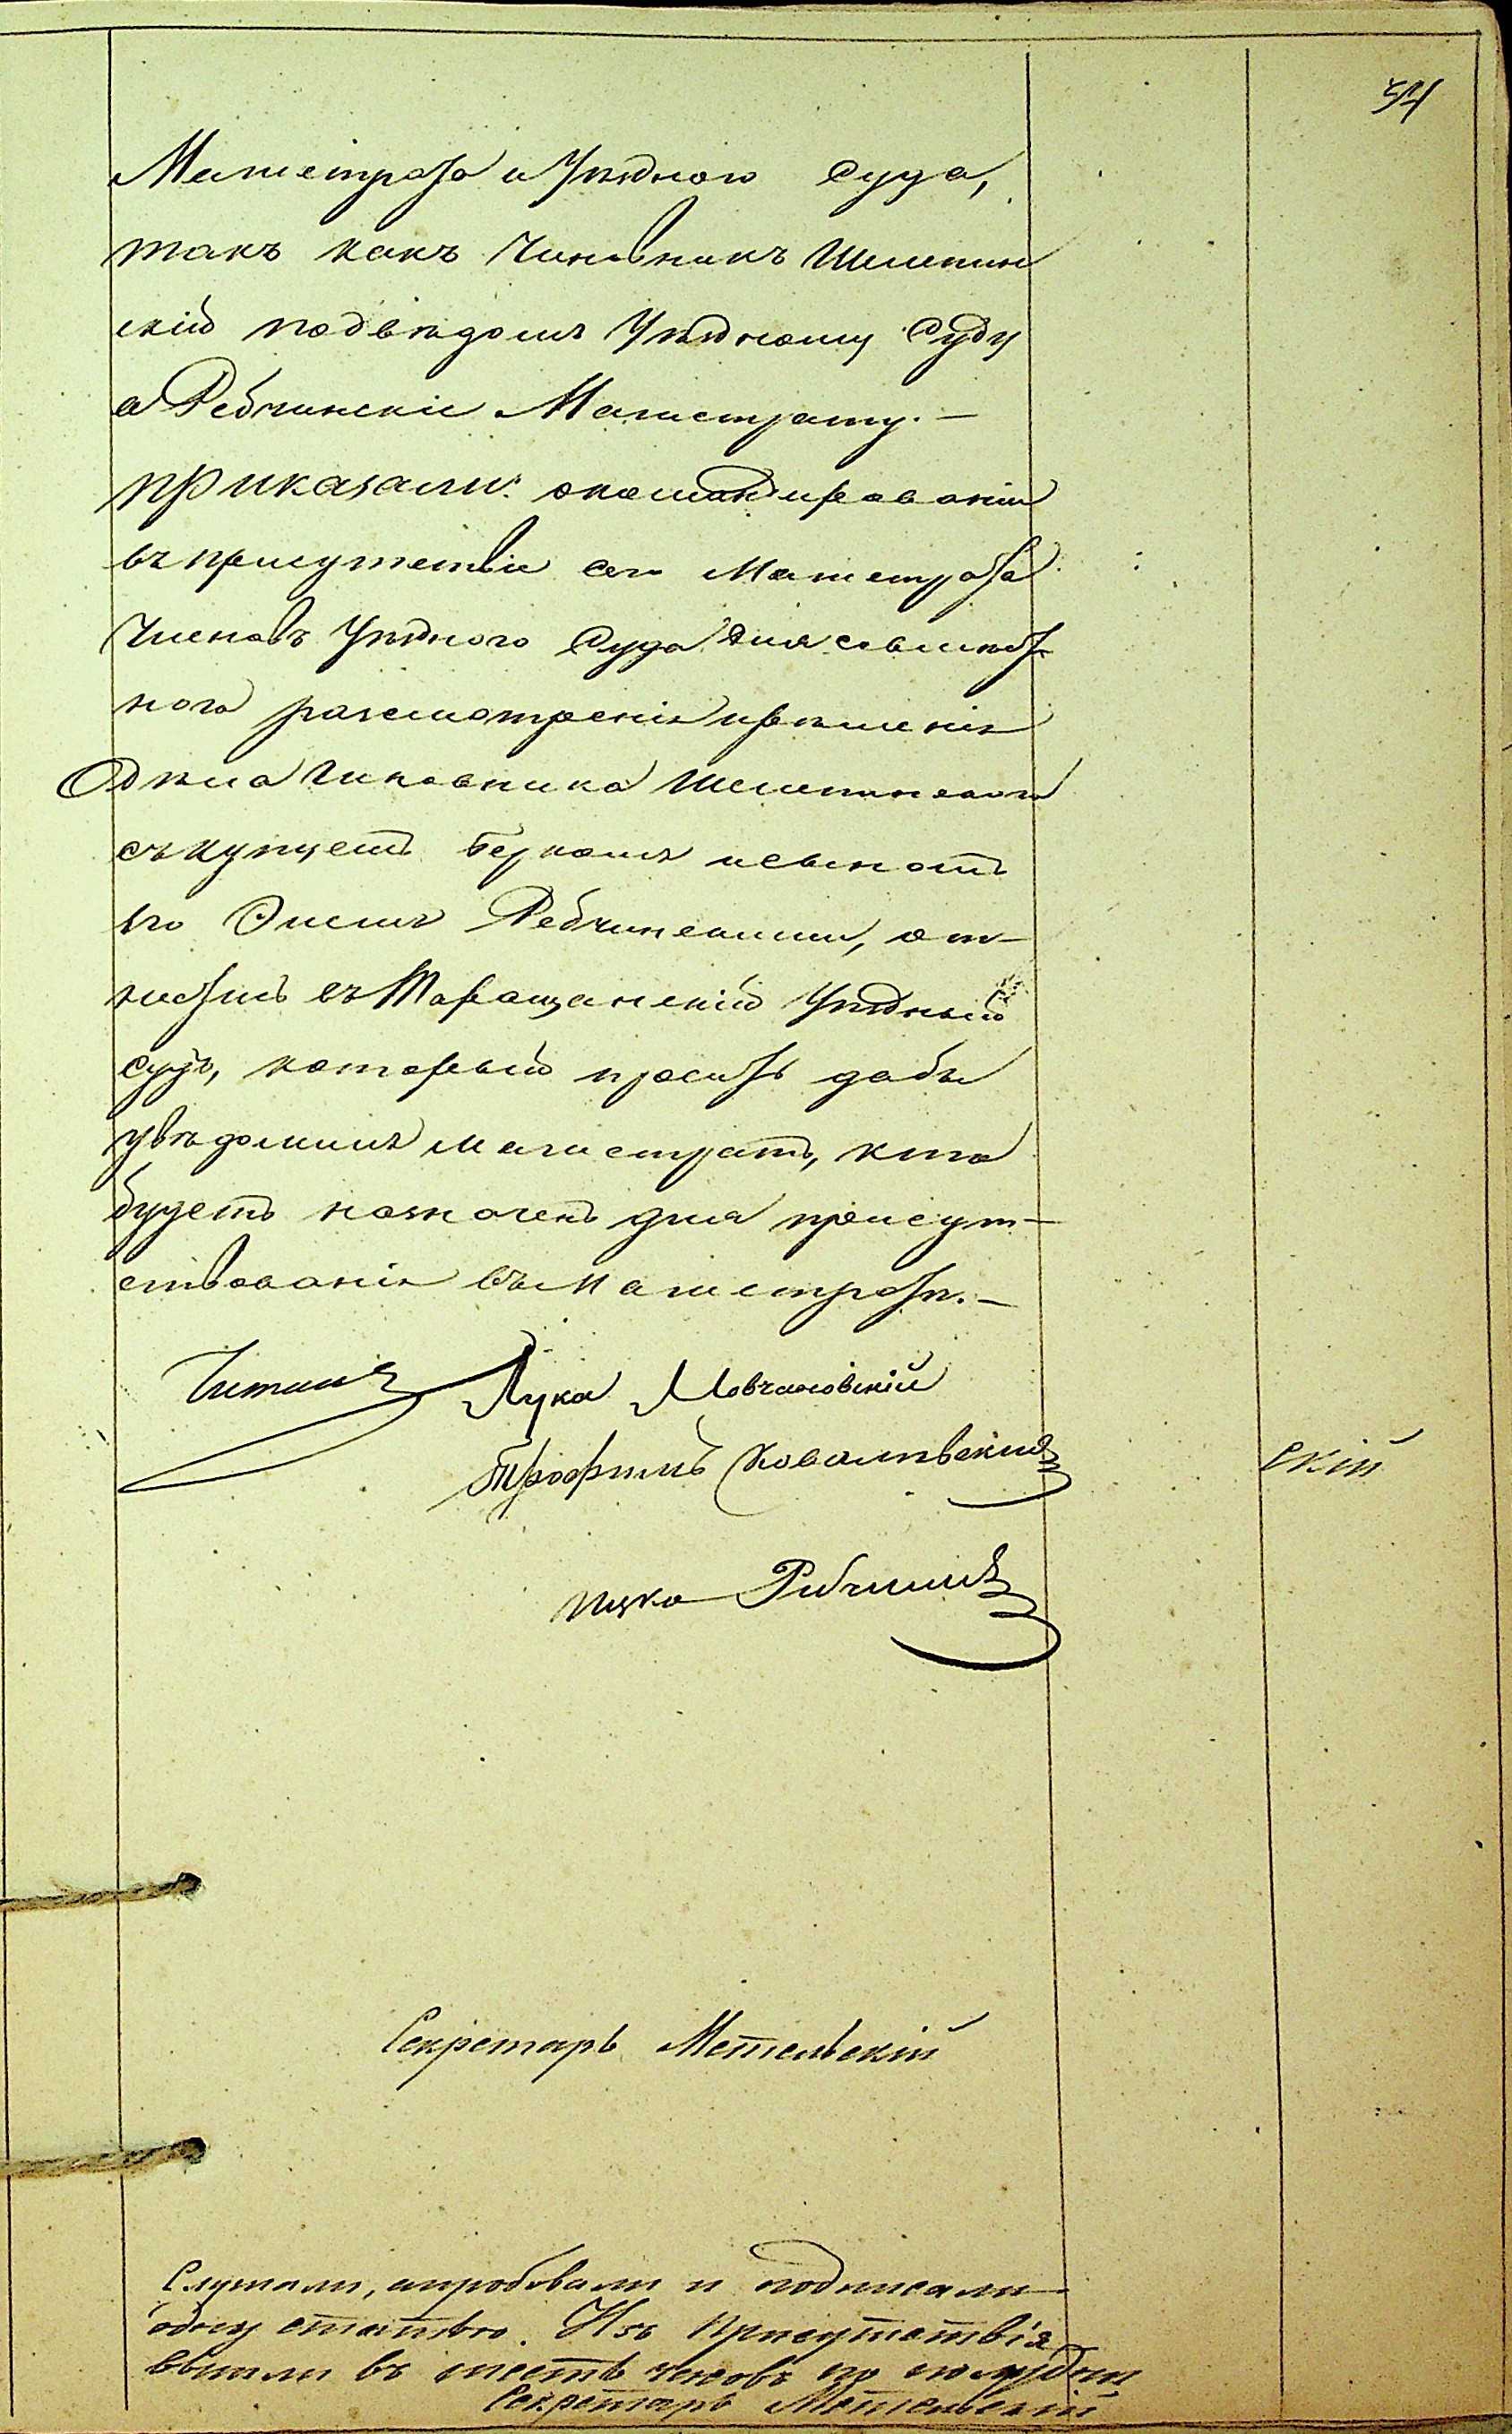 54
Магистрата и Уѣзднаго Суда,
такъ какъ Чиновникъ Шелепин
скій подвѣдомъ Уѣздному Суду
а Ребчинскіе Магистрату. —
приказали: окомандированіи
въ присутствіе сего Магистрата
Членовъ Уѣзднаго Суда для совмѣст-
ного разсмотренія и рѣшенія
Дѣла Чиновника Шелепинского
съ купцемъ Беркомъ и сыномъ
его Ребчинскими, от-
нестись въ Таращанскій Уѣздный
судъ, который просить дабы
увѣдомилъ магистратъ, кто
будетъ назначенъ для присут-
ствованія въ Магистратѣ. —
Читалъ Лука Мовчановскій
Трофимъ Ковалевскій
скій
Ицко Рибчинский
Секретарь Метельскій
Слушали, апробовали и подписали
одну статью. Изъ Присутствія
вышли въ шесть часовъ по полудни
Секретарь Метельскій